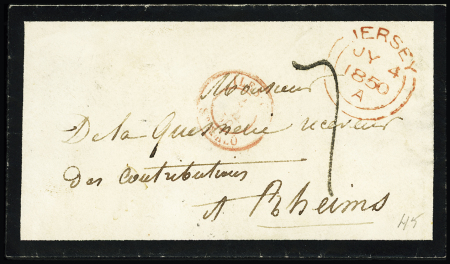 JERSEY
JY 4
1850
A
Monsieur
7
De la Quesnerie receveur
des contributions
A Rheims
45